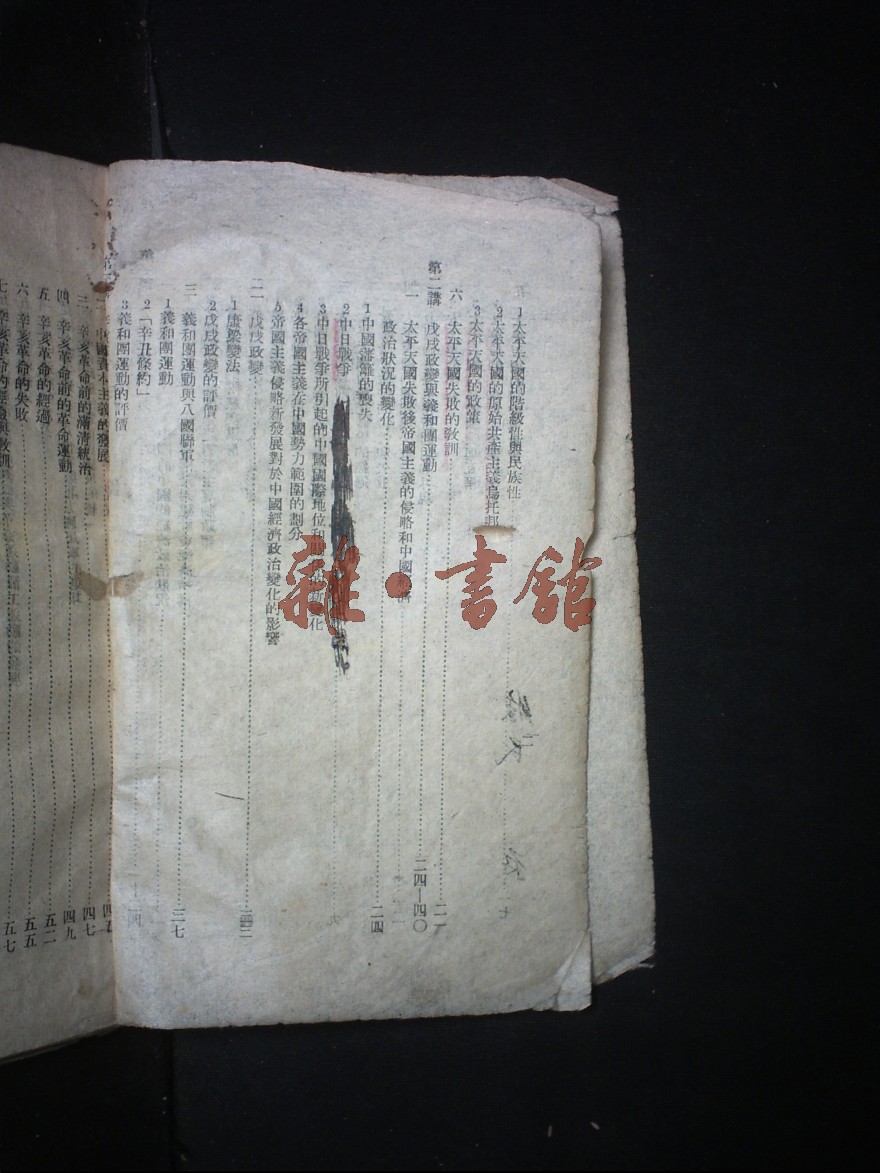 1 太平天國的階級性與民族性
2 太平天國的原始共產主義烏托邦
3 太平天國的政策
六 太平天國失敗的敎訓 二一
第二講 戊戌政變與義和團運動 二四—四〇
一 太平天國失敗後帝國主義的侵略和中國經濟
政治狀況的變化 二四
1 中國藩籬的喪失
2 中日戰爭
3 中日戰爭所引起的中國國際地位和
4 各帝國主義在中國勢力範圍的劃分
5 帝國主義侵略新發展對於中國經濟政治變化的影響
二 戊戌政變
1 康梁變法
2 戊戌政變的評價
三 義和團運動與八國聯軍 三七
1 義和團運動
2 「辛丑條約」
3 義和團運動的評價
二 中國資本主義的發展 四五
三 辛亥革命前的滿清統治 四七
四 辛亥革命前的革命運動 四九
五 辛亥革命的經過 五二
六 辛亥革命的失敗 五五
七 辛亥革命的 與敎訓 五七
雜·書館